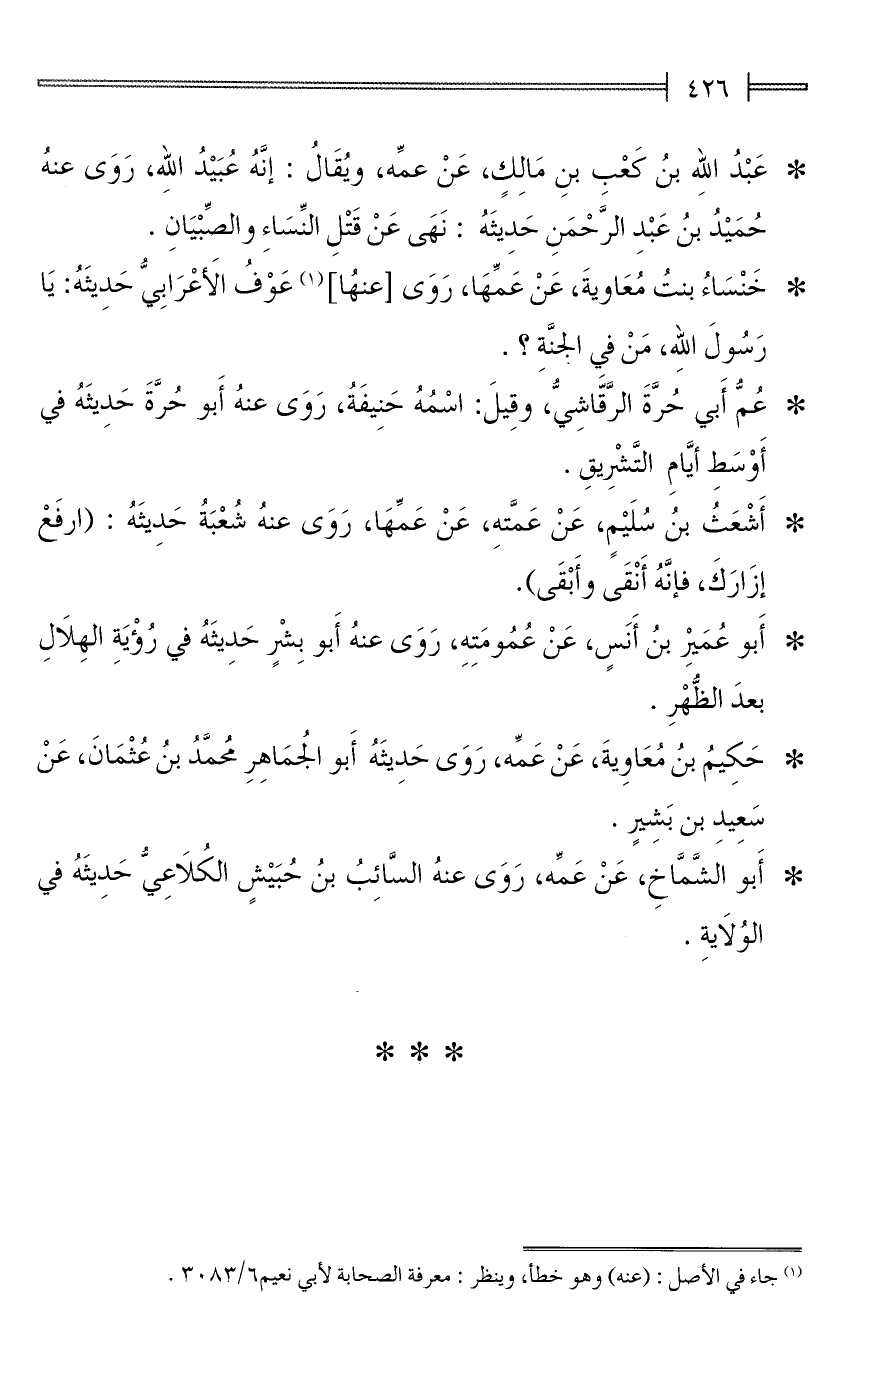 ٤٢٦
* عَبْدُ اللهِ بنُ كَعْبِ بنِ مَالِكٍ، عَنْ عمِّه، ويُقَالُ : إنَّهُ عُبَيْدُ اللهِ، رَوَى عنهُ
حُمَيْدُ بنُ عَبْدِ الرَّحْمَنِ حَدِيثَهُ : نَهَى عَنْ قَتْلِ النِّسَاءِ والصِّبْيَانِ .
* خَنْسَاءُ بنتُ مُعَاويةَ، عَنْ عَمِّهَا، رَوَى [عنهُا](١) عَوْفُ الأَعْرَابيُّ حَدِيثَهُ: يَا
رَسُولَ اللهِ، مَنْ في الجنَّةِ ؟ .
* عُمُّ أَبي حُرَّةَ الرَّقَّاشيُّ، وقِيلَ: اسْمُهُ حَنِيفَةُ، رَوَى عنهُ أَبو حُرَّةَ حَدِيثَهُ في
أَوْسَطِ أيَّامِ التَّشْرِيقِ .
* أَشْعَثُ بنُ سُلَيْمٍ، عَنْ عَمَّتهِ، عَنْ عَمِّهَا، رَوَى عنهُ شُعْبَةُ حَدِيثَهُ : (ارفَعْ
إزَارَكَ، فإنَّهُ أَنْقَى وأَبْقَى).
* أَبو عُمَيْرِ بنُ أَنَسٍ، عَنْ عُمُومَتِهِ، رَوَى عنهُ أَبو بِشْرٍ حَدِيثَهُ في رُؤْيَةِ الهِلَالِ
بعدَ الظُّهْرِ .
* حَكِيمُ بنُ مُعَاوِيةَ، عَنْ عَمِّه، رَوَى حَدِيثَهُ أَبو الجُمَاهِرِ مُحمَّدُ بنُ عُثْمَانَ، عَنْ
سَعِيدِ بنِ بَشيرٍ .
* أَبو الشَّمَّاخِ، عَنْ عَمِّه، رَوَى عنهُ السَّائِبُ بنُ حُبَيْشٍ الكُلَاعِيُّ حَدِيثَهُ في
الوُلَايةِ .
* * *
(١) جاء في الأصل : (عنه) وهو خطأ، وينظر : معرفة الصحابة لأبي نعيم٦/٣٠٨٣ .